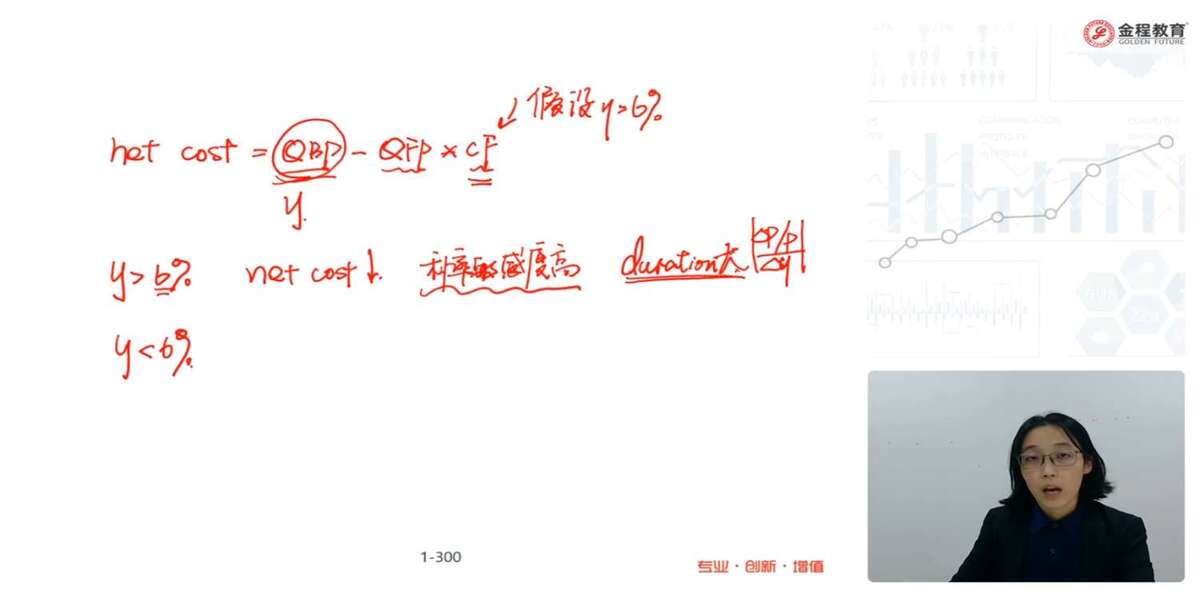 金程教育
GOLDEN FUTURE
假设 y=6%
net cost = QBP - QFP × CF
y
y>6% net cost↓. 利率敏感度高 duration大 |ΔP/P / Δy|
y<6%.
1-300
专业·创新·增值